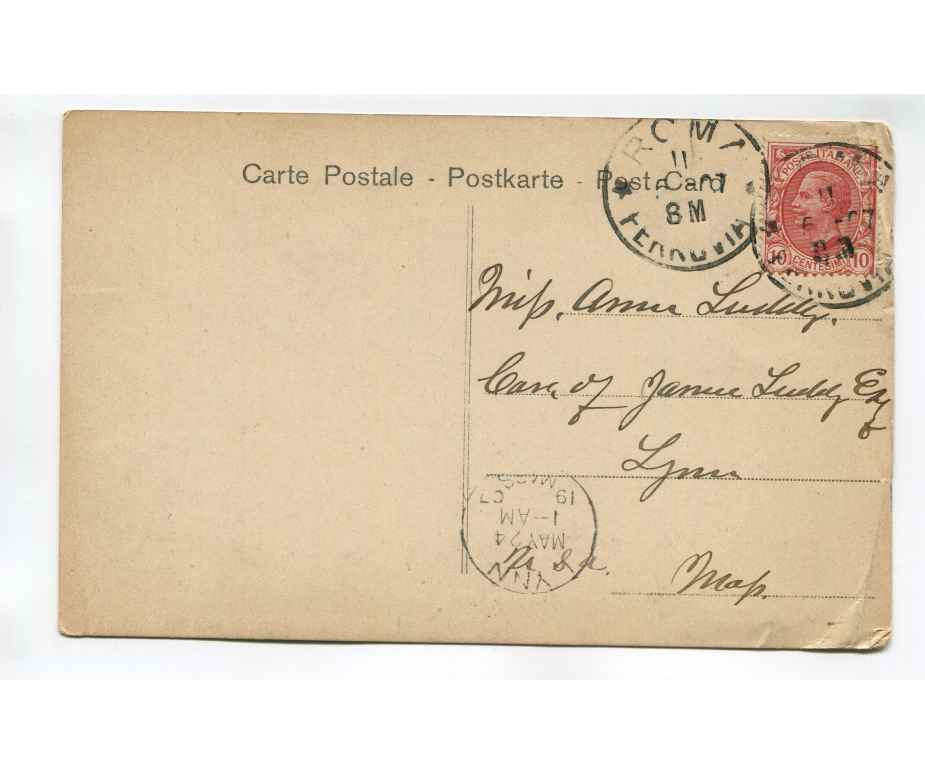 Carte Postale - Postkarte - Post Card
ROMA
11
5 07
8M
★ FERROVIA
POSTE ITALIANE
11
5 - 07
10 CENTESIMI 10
Miss. Anna Luddy.
Care of James Luddy Esq
Lynn
Mass.
U.S.A.
LYNN
MAY 24
1-AM
1907
MASS